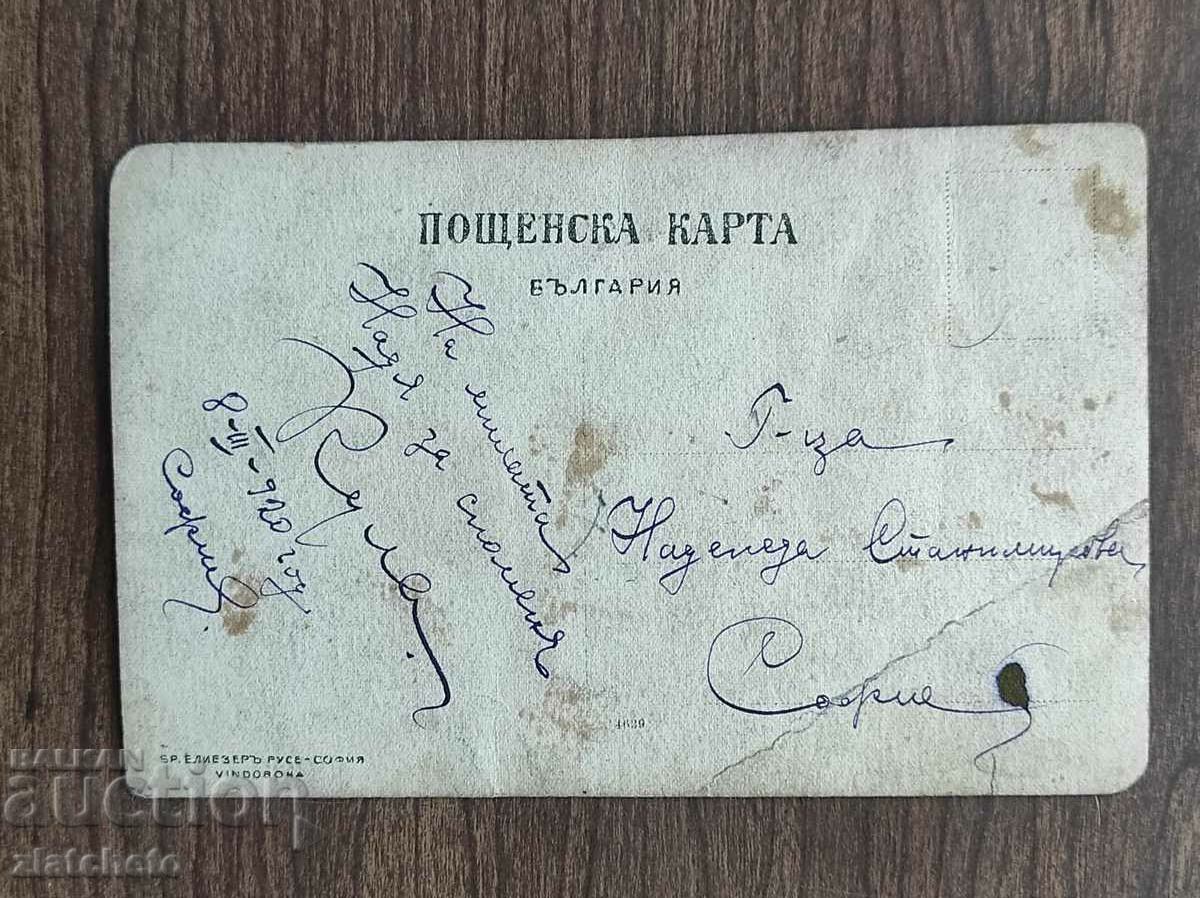 ПОЩЕНСКА КАРТА
БЪЛГАРИЯ
На милата
Надя за споменъ
8-III-920 год.
София.
Г-ца
Надежда Станимирова
София
4639
БР. ЕЛИЕЗЕРЪ РУСЕ-СОФИЯ
VINDOBONA
BALKAN
auction
zlatcheto